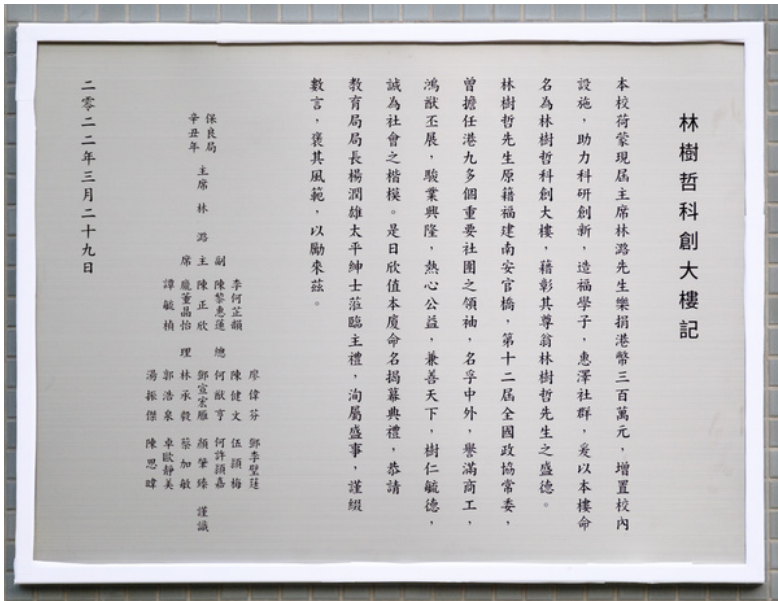 林樹哲科創大樓記
本校荷蒙現屆主席林潞先生樂捐港幣三百萬元，增置校內
設施，助力科研創新，造福學子，惠澤社群，爰以本樓命
名為林樹哲科創大樓，藉彰其尊翁林樹哲先生之盛德。
林樹哲先生原籍福建南安官橋，第十二屆全國政協常委，
曾擔任港九多個重要社團之領袖，名孚中外，譽滿商工，
鴻猷丕展，駿業興隆，熱心公益，兼善天下，樹仁毓德，
誠為社會之楷模。是日欣值本廈命名揭幕典禮，恭請
教育局局長楊潤雄太平紳士蒞臨主禮，洵屬盛事，謹綴
數言，褒其風範，以勵來茲。
保良局
辛丑年
主席 林潞
副主席
李何芷韻
陳黎惠蓮
陳正欣
龐董晶怡
譚毓楨
總理
廖偉芬 鄧李璧蓮
陳健文 伍頴梅
何猷亨 何許頴嘉
鄧宣宏雁 顏肇臻
林承毅 蔡加敏
郭浩泉 卓歐靜美
湯振傑 陳思暐
謹識
二零二二年三月二十九日